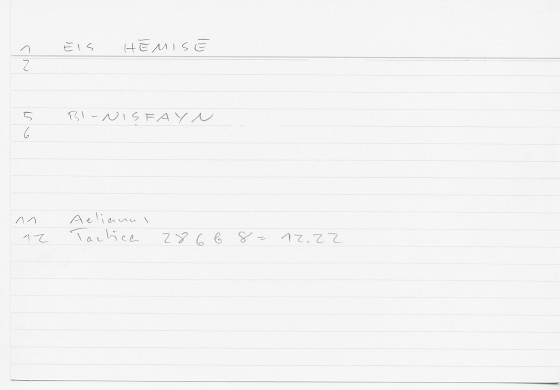 1 EIS HĒMISĒ
2
5 BI-NIṢFAYN
6
11 Aelianus
12 Tactica 286 B 8 = 12.22